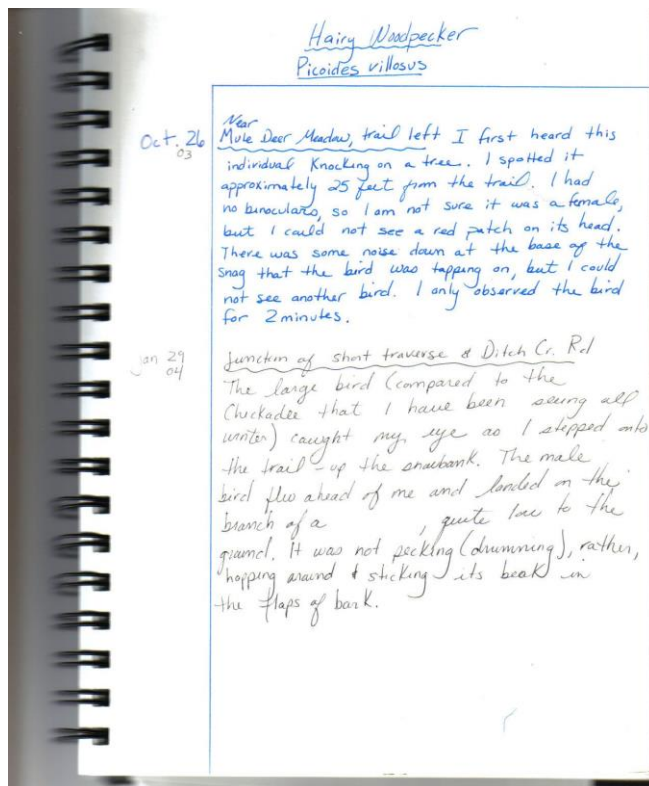 Hairy Woodpecker
Picoides villosus
Near
Oct. 26 Mule Deer Meadow, trail left I first heard this
03
individual Knocking on a tree. I spotted it
approximately 25 feet from the trail. I had
no binoculars, so I am not sure it was a female,
but I could not see a red patch on its head.
There was some noise down at the base of the
snag that the bird was tapping on, but I could
not see another bird. I only observed the bird
for 2 minutes.
Jan 29 Junction of short traverse & Ditch Cr. Rd
04
The large bird (compared to the
Chickadee that I have been seeing all
winter) caught my eye as I stepped onto
the trail - up the snowbank. The male
bird flew ahead of me and landed on the
branch of a , quite low to the
ground. It was not pecking (drumming), rather,
hopping around & sticking its beak in
the flaps of bark.